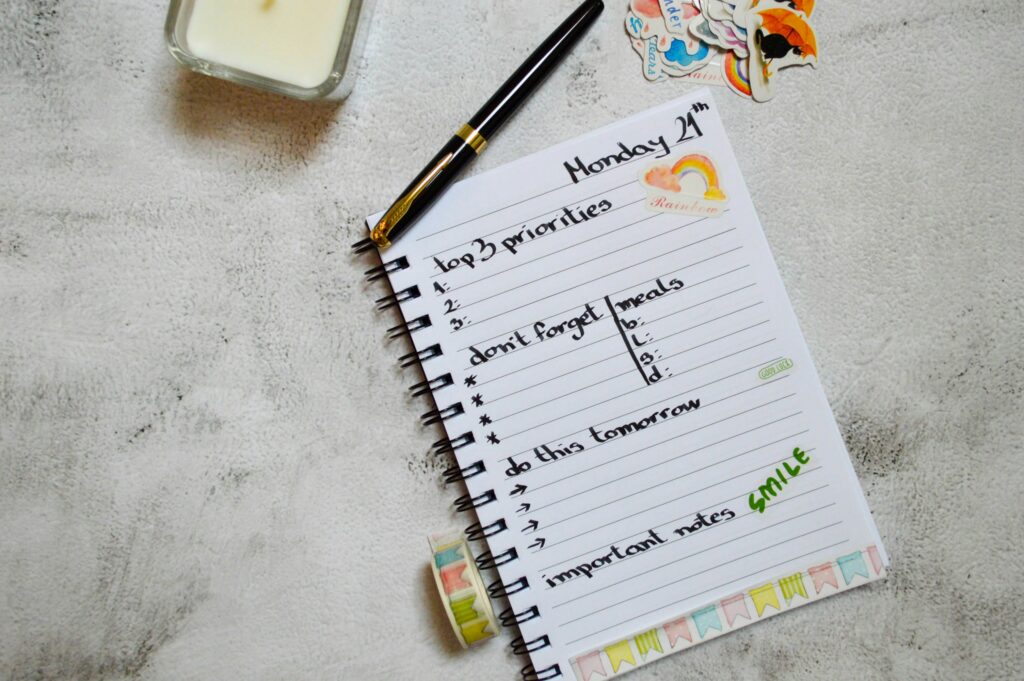 Monday 21th
Rainbow
top 3 priorities
1:
2:
3:
don't forget
*
*
*
*
meals
b:
L:
s:
d:
GOOD LUCK
do this tomorrow
→
→
→
→
important notes
SMILE